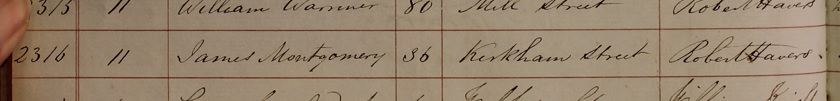 2313 11 William Warriner 80 Mill Street Robert Havers
2316 11 James Montgomery 36 Kirkham Street Robert Havers